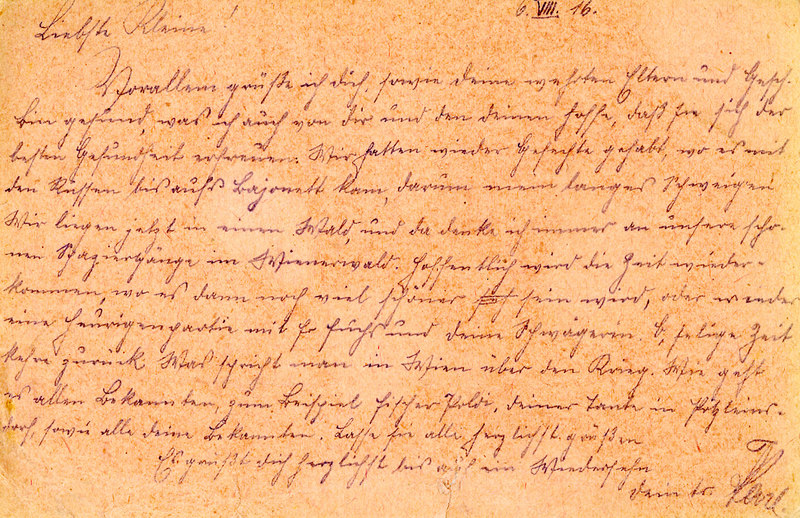 6. VIII. 16.
Liebste Kleine!
Vorallem grüße ich dich, sowie deine wehrten Eltern und Gesch.
Bin gesund, was ich auch von dir und den deinen hoffe, daß sie sich der
besten Gesundheit erfreuen. Wir hatten wieder Gefechte gehabt, wo es mit
den Russen bis aufs Bajonett kam, darum mein langes Schweigen
Wir liegen jetzt in einen Wald, und da denke ich immer an unsere schö-
nen Spaziergänge im Wienerwald. Hoffentlich wird die Zeit wieder-
kommen, wo es dann noch viel schöner sein wird, oder wieder
eine Heurigenpartie mit Fr Fuchs und deine Schwägerin. O, selige Zeit
kehre zurück. Was spricht man in Wien über den Krieg. Wie geht
es allen Bekannten, zum Beispiel Fischer Poldi, deiner Tante in Pötzleins-
dorf, sowie alle deine Bekannten. Lasse sie alle herzlichst grüßen
Es grüßt dich herzlichst bis auf ein Wiedersehn
dein tr. Karl